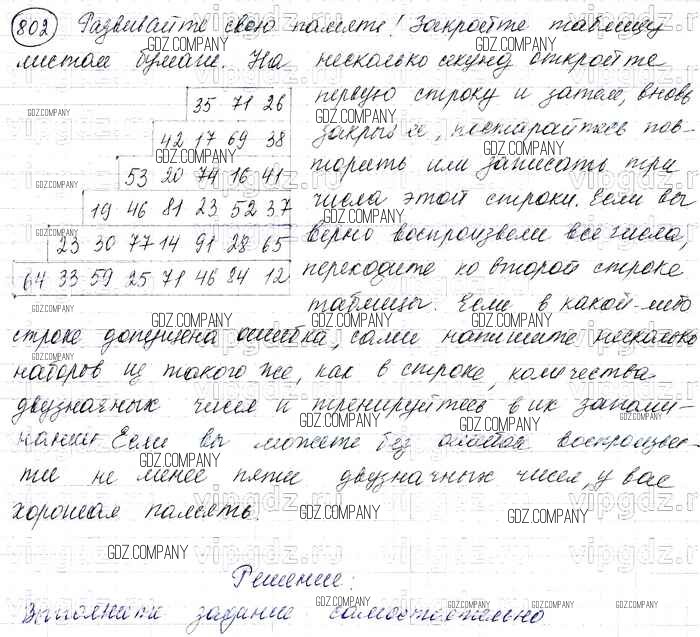 802 Развивайте свою память! Закройте таблицу
листом бумаги. На несколько секунд откройте
35 71 26 первую строку и затем, вновь
42 17 69 38 закрыв её, постарайтесь пов-
53 20 74 16 41 торить или записать три
19 46 81 23 52 37 числа этой строки. Если вы
23 30 77 14 91 28 65 верно воспроизвели все числа,
64 33 59 25 71 46 84 12 переходите ко второй строке
таблицы. Если в какой-либо
строке допущена ошибка, сами напишите несколько
наборов из такого же, как в строке, количества
двузначных чисел и тренируйтесь в их запоми-
нании. Если вы можете без ошибок воспроизвес-
ти не менее пяти двузначных чисел, у вас
хорошая память.
Решение:
Выполните задание самостоятельно
GDZ.COMPANY
vipgdz.ru